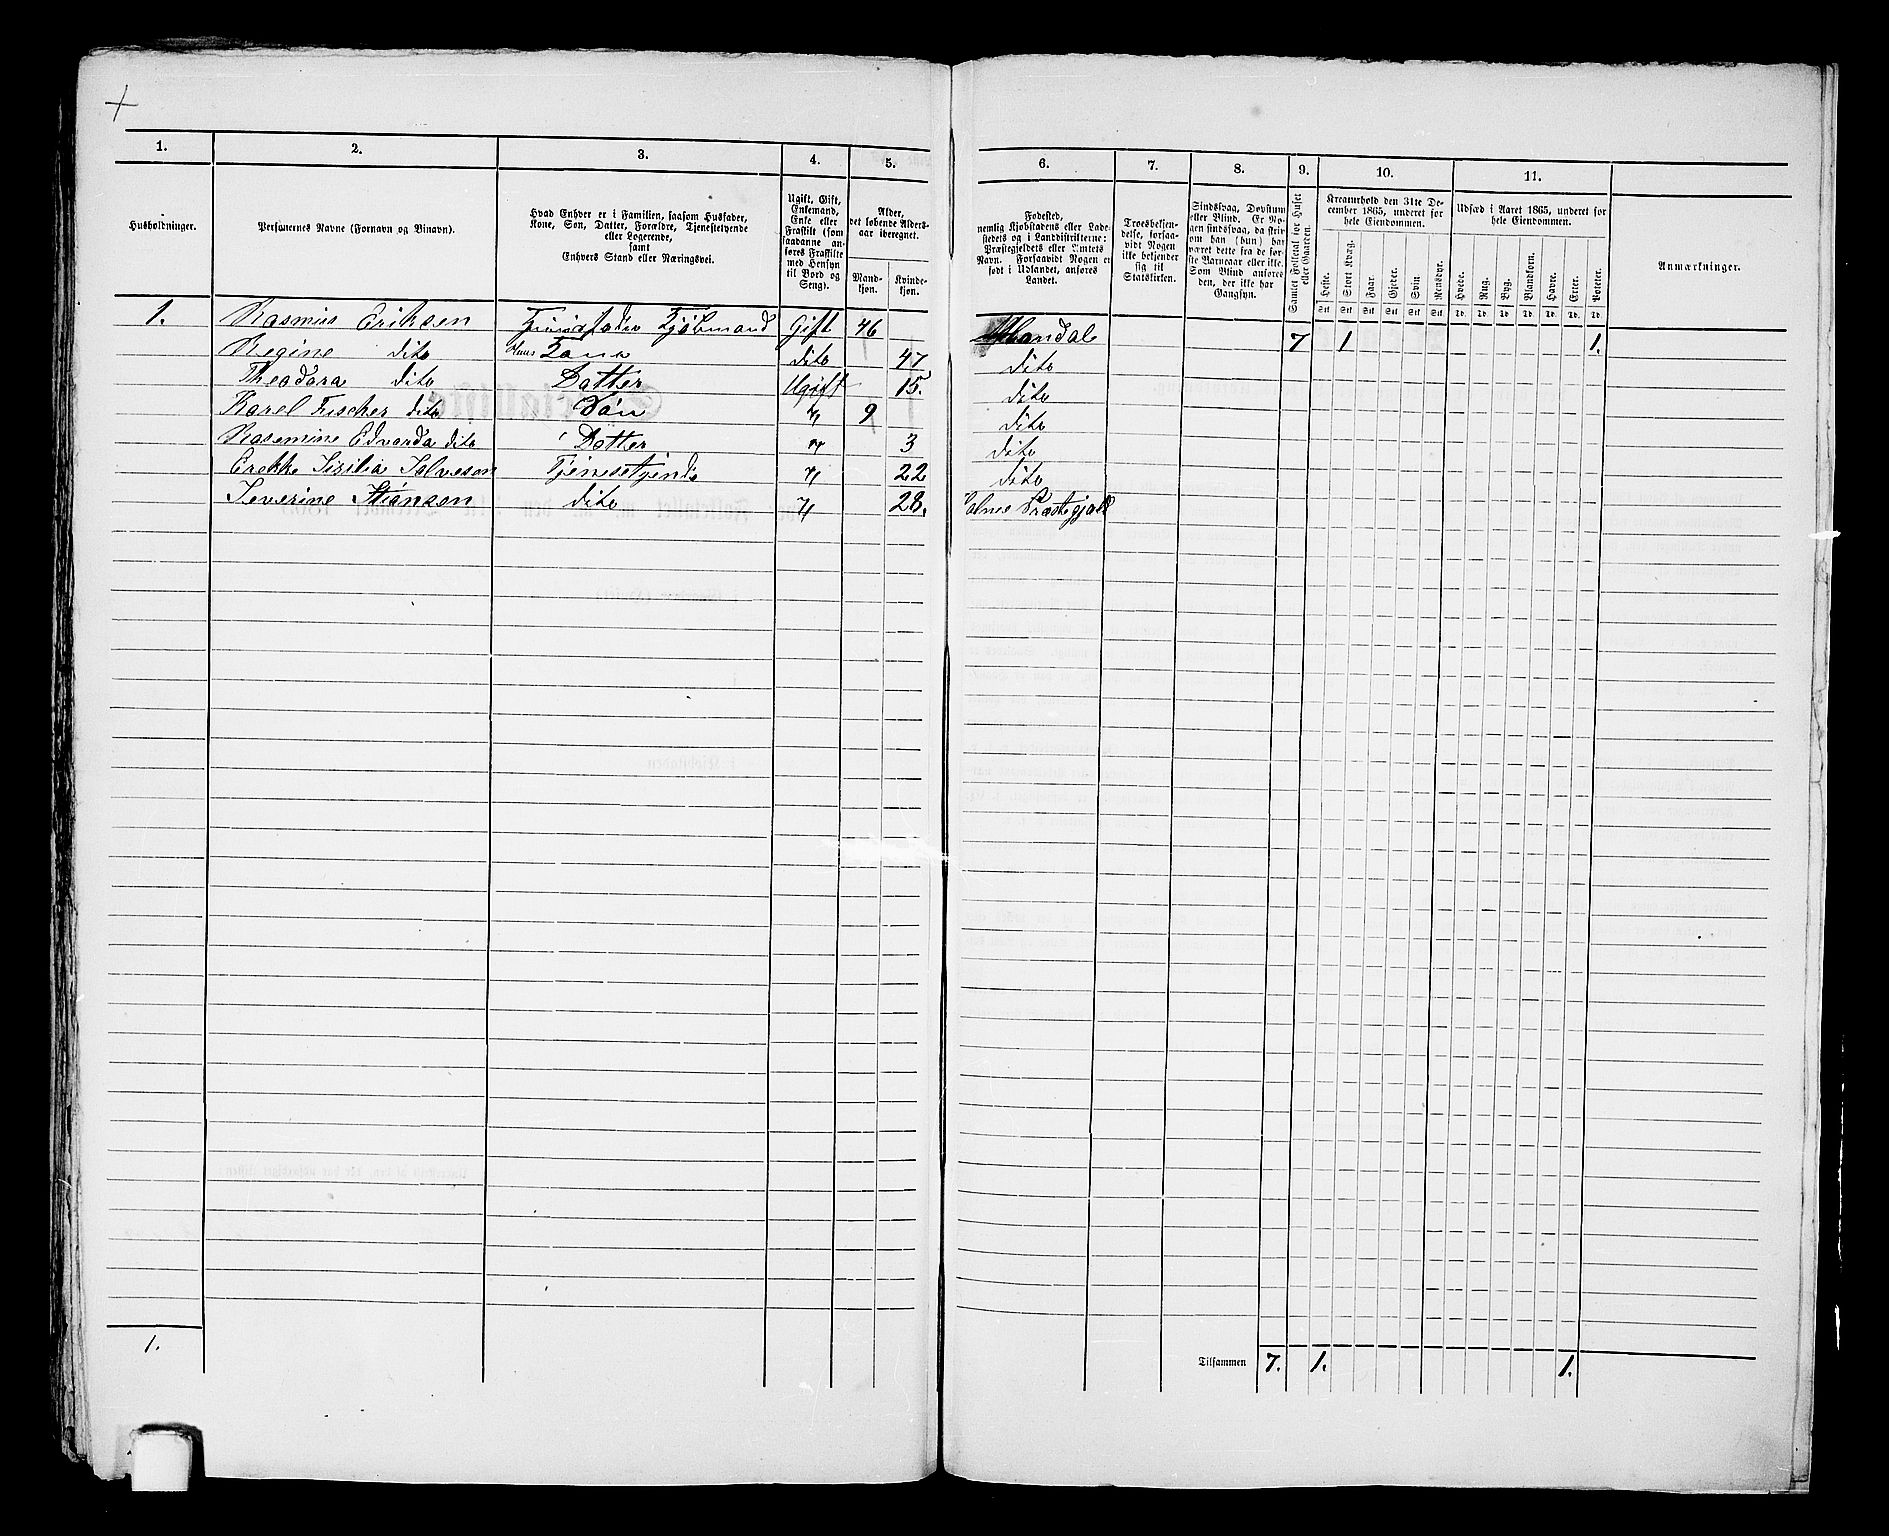 1. 2. 3. 4. 5. 6. 7. 8. 9. 10. 11.
Husholdninger.
Personernes Navne (Fornavn og Binavn).
Hvad Enhver er i Familien, saasom Husfader,
Kone, Søn, Datter, Forældre, Tjenestetyende
eller Logerende,
samt
Enhvers Stand eller Næringsvei.
Ugift, Gift,
Enkemand,
Enke eller
Fraskilt (som
saadanne an-
føres Fraskilte
med Hensyn
til Bord og
Seng).
Alder,
det løbende Alders-
aar iberegnet.
Mand-
kjøn.
Kvinde-
kjøn.
Fødested,
nemlig Kjøbstadens eller Lade-
stedets og i Landdistrikterne:
Præstegjeldets eller Amtets
Navn. Forsaavidt Nogen er
født i Udlandet, anføres
Landet.
Troesbekjen-
delse, forsaa-
vidt Nogen
ikke bekjender
sig til
Statskirken.
Sindssvag, Døvstum
eller Blind. Er No-
gen sindssvag, da skriv
om han (hun) har
været dette fra de før-
ste Barneaar eller ikke.
Som Blind anføres
den, der ikke har
Gangsyn.
Samlet Folketal for Huset
eller Gaarden.
Kreaturhold den 31te De-
cember 1865, underet for
hele Eiendommen.
Heste. Stort Kvæg. Faar. Gjeder. Svin. Rensdyr.
Stk Stk Stk Stk Stk Stk
Udsæd i Aaret 1865, underet for
hele Eiendommen.
Hvede. Rug. Byg. Blandkorn. Havre. Erter. Poteter.
Td. Td. Td. Td. Td. Td. Td.
Anmærkninger.
1. Rasmus Eriksen Kjøbmand Gift 46 Mandal 7 1 1.
Regine dito Hans Kone dito 47 dito
Theodora dito Datter Ugift 15. dito
Karel Fischer dito Søn " 9 dito
Rasemine Edvarda dito Datter " 3 dito
Salveson " 22 dito
Severine dito " 28. Præstegjeld
1. Tilsammen 7. 1. 1.